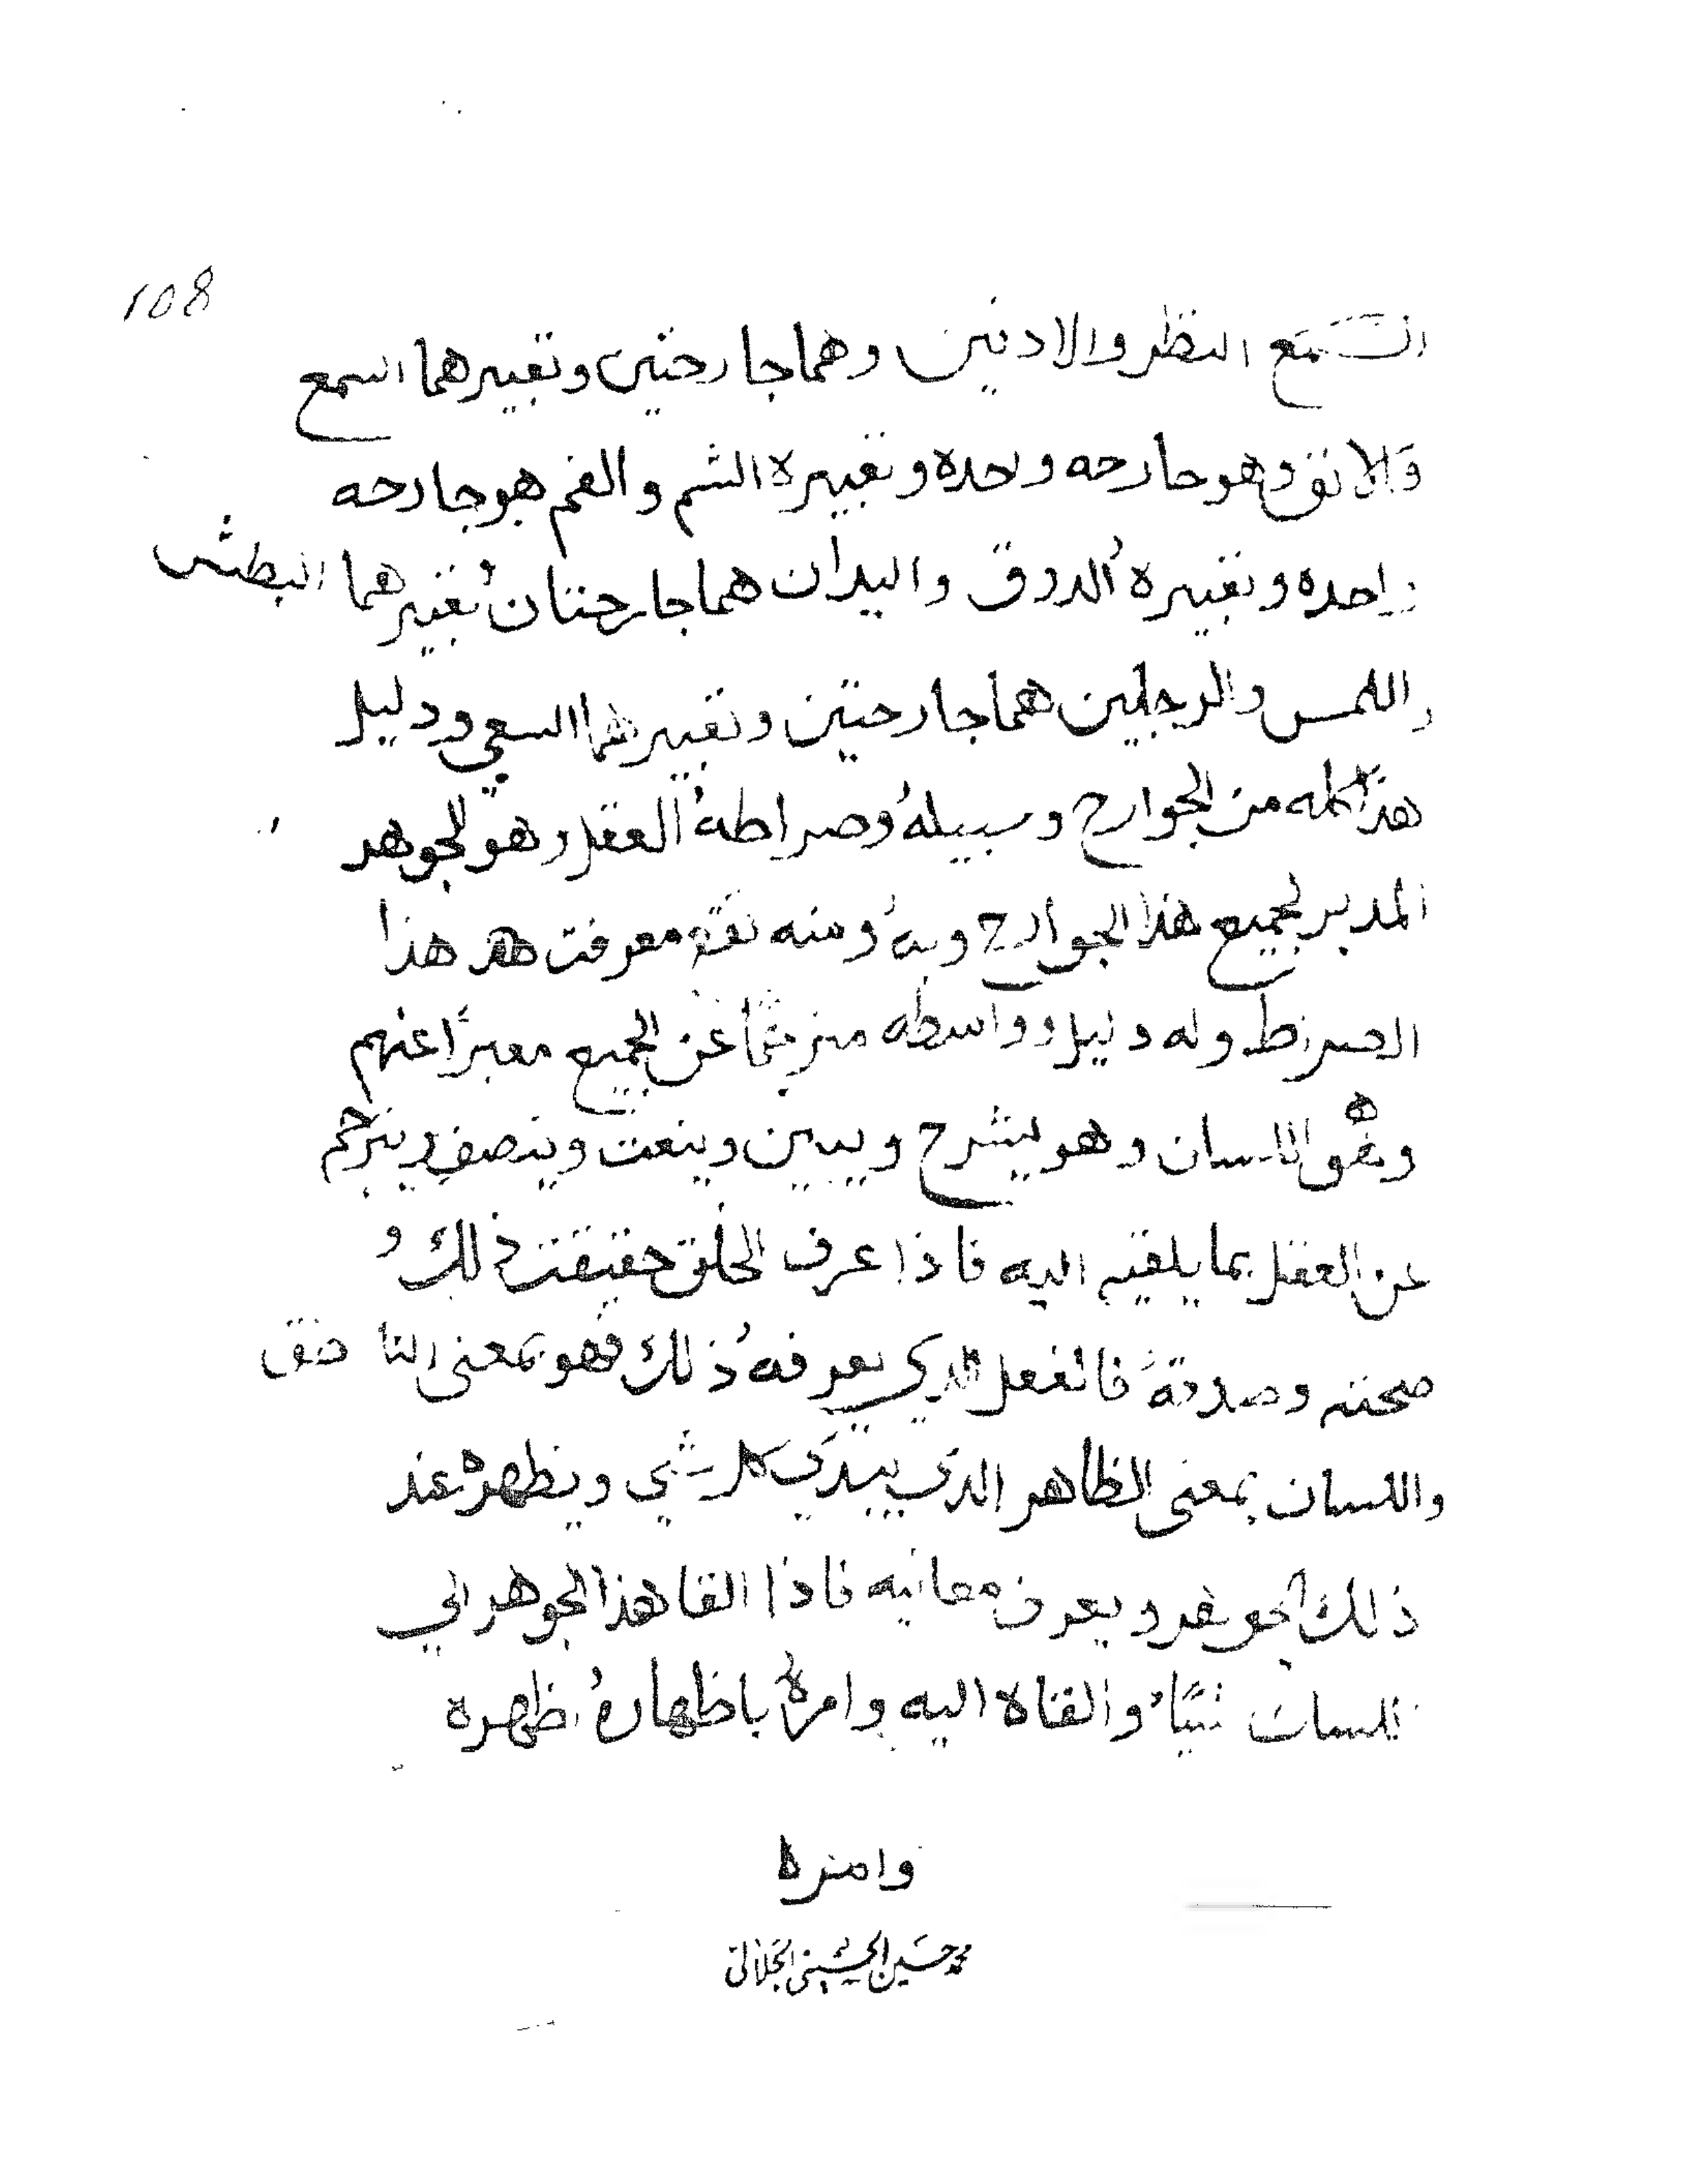 108
السمع النظر والادنين وهما جارحتين وتغييرهما السمع
والانف وهو جارحه وحده وتغييره الشم والفم هو جارحه
واحده وتغييره الدوق واليدان هما جارحتان تغييرهما البطش
واللمس والرجلين هما جارحتين وتغييرهما السعي ودليل
هذا كله من الجوارح وسبيله وصراطه العقل وهو الجوهر
المدبر لجميع هذا الجوارح وبه ومنه تقع معرفت هذا
الصراط وله دليل وواسطه مترجمًا عن الجميع معبرًا عنهم
وهو اللسان وهو يشرح ويبين وينعت وينصف ويترجم
عن العقل بما يلقيه اليه فاذا عرف الخلق حقيقت ذلك و
صحته وصدقه فالفعل الدي يعرفه ذلك فهو بمعنى الناطق
واللسان بمعنى الظاهر الدي يبتدي كل شي ويظهره عند
ذلك الجوهر ويعرف معانيه فاذا القا هذا الجوهر الي
اللسان شيًا والقاه اليه وامره باظهاره اظهره
وامره
محمد حسين الحسيني الجلالي